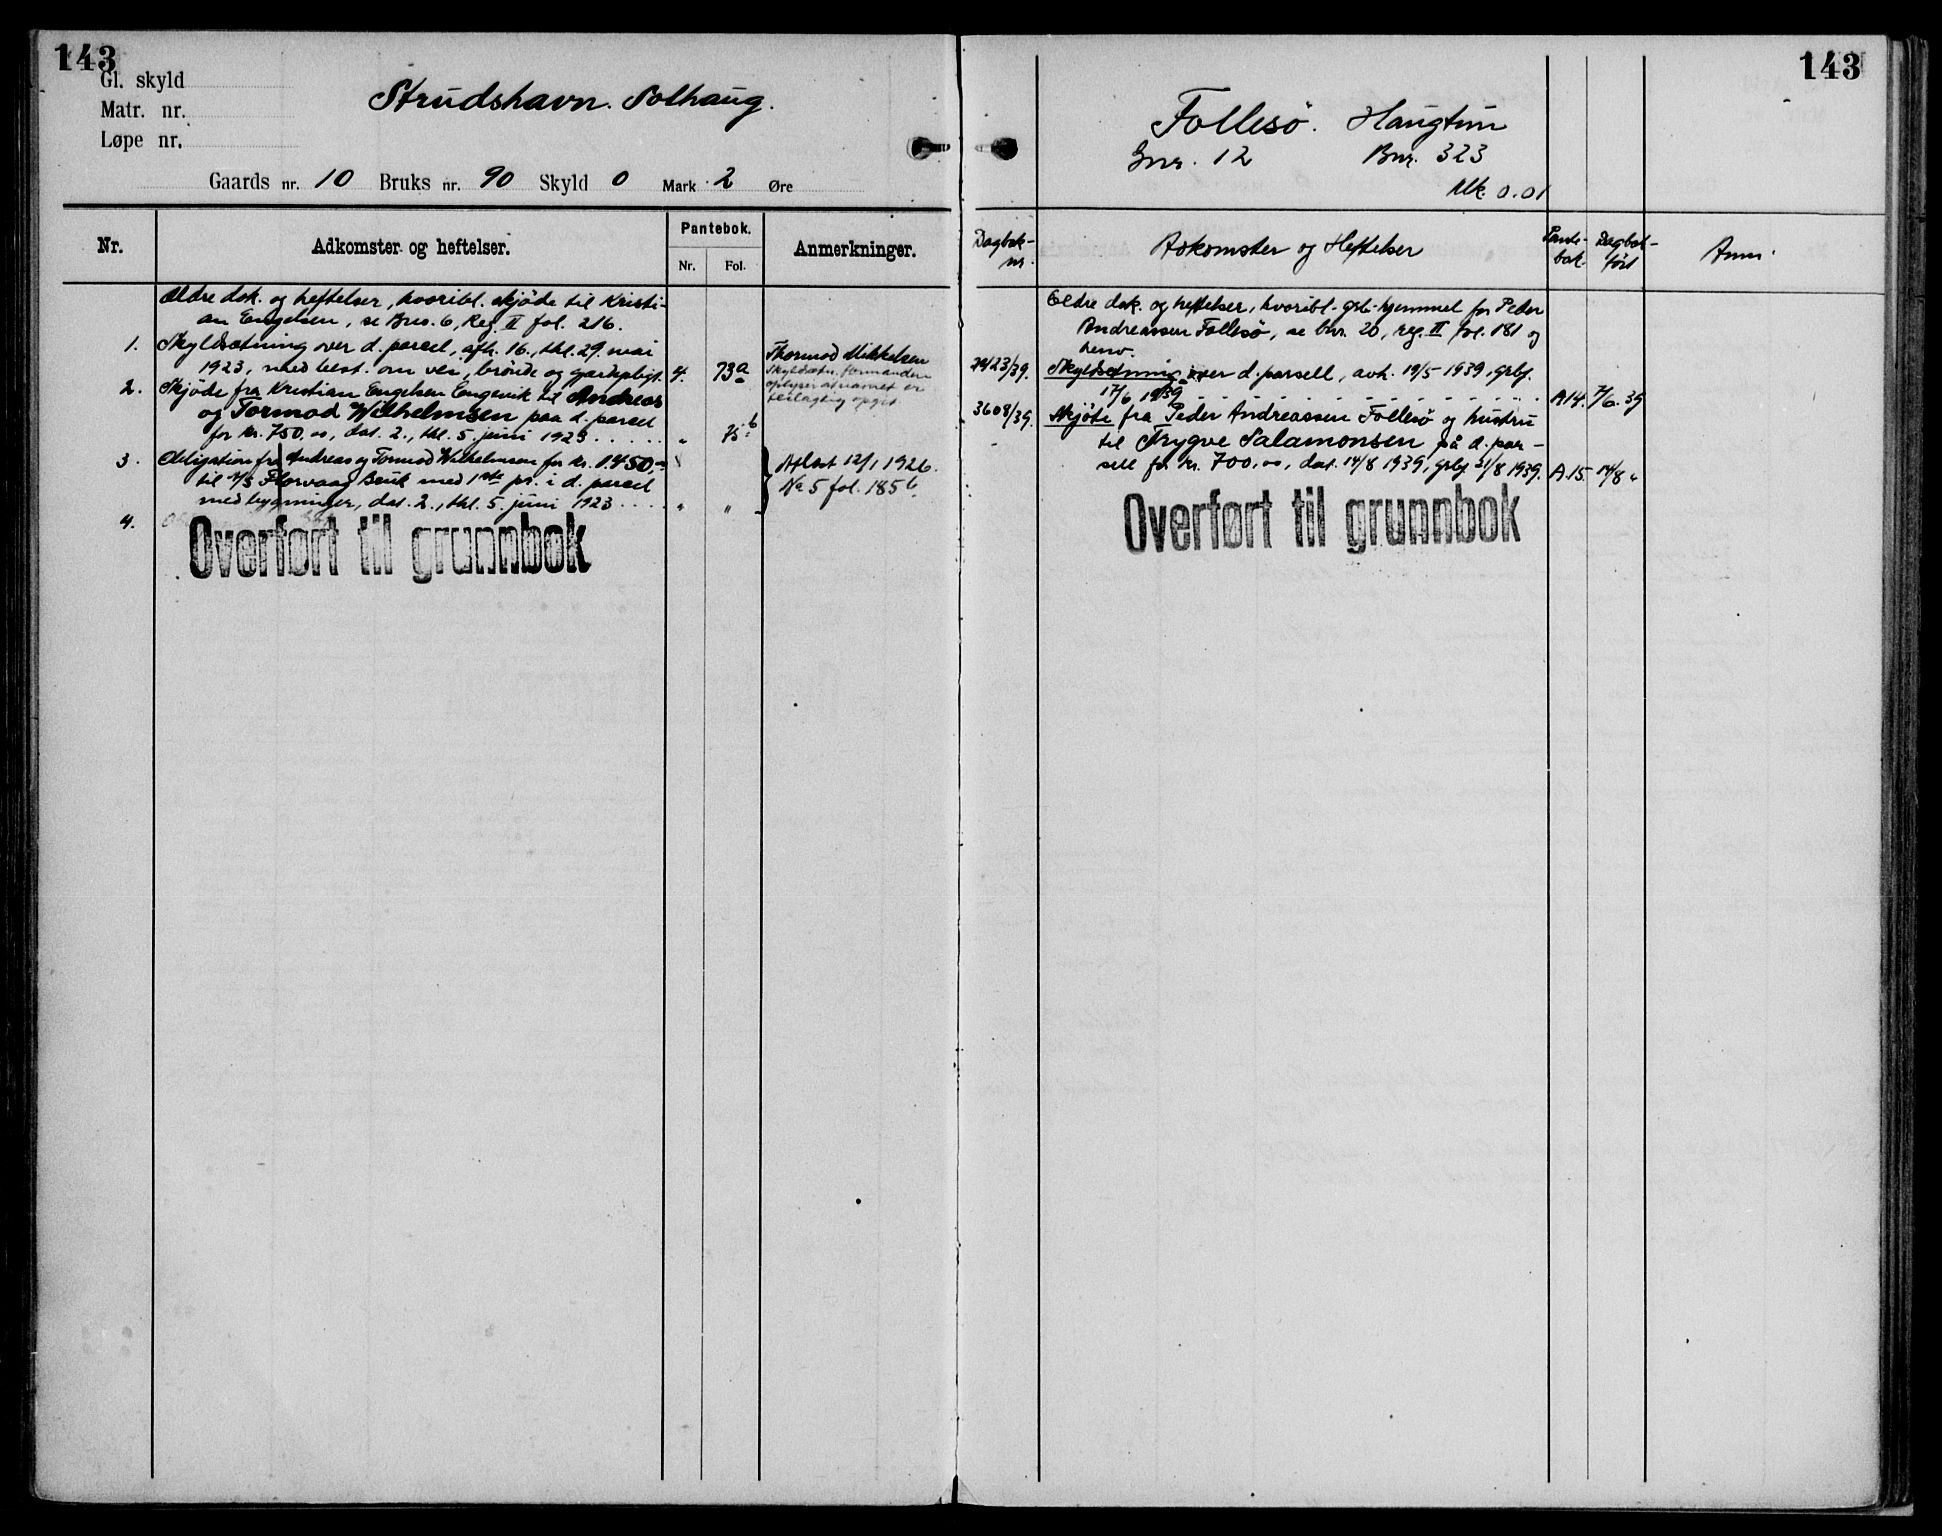 143
Gl. skyld
Matr. nr.
Løpe nr.
Strudshavn. Solhaug.
Gaards nr. 10 Bruks nr. 90 Skyld 0 Mark 2 Øre
Nr.
Adkomster og heftelser.
Pantebok.
Nr. Fol.
Anmerkninger.
Ældre dok. og heftelser, hvoribl. skjøde til Kristi-
an Engelsen, se Brno. 6, Reg. II fol. 216.
1. Skyldsætning over d. parcel, afh. 16., thl. 29. mai
1923, med best. om vei, brønde og gjerdepligt. 4. 73a
Thormod Mikkelsen
Skyldsætn. formanden
oplyser at navnet er
feilagtig opgit
2. Skjøde fra Kristian Engelsen Engevik til Andreas
og Tormod Wilhelmsen paa d. parcel
for kr. 750.00, dat. 2., thl. 5. juni 1923 . . . . . " 75b
3. Obligation fra Andreas og Tormod Wilhelmsen for kr. 1450,-
til A/S Florvaag Bruk med 1ste pr. i d. parcel
med bygninger, dat. 2., thl. 5. juni 1923 . . . . " "
Aflæst 12/1 1926.
No 5 fol. 185b.
4.
Overført til grunnbok
143
Follesø. Haugtun
Gnr. 12 Bnr. 323
Mk. 0.01
Dagbok-
nr.
Adkomster og Heftelser
Pante-
bok
Dagbok-
ført
Anm.
Eldre dok. og heftelser, hvoribl. grb. hjemmel for Peder
Andreassen Follesø, se bnr. 20, reg. II fol. 181 og
henv.
2423/39. Skyldsetning over d. parsell, avh. 19/5 1939, grbf.
17/6 1939 . . . . . . . . . . A14. 7/6.39
3608/39. Skjøte fra Peder Andreassen Follesø og hustru
til Trygve Salamonsen på d. par-
sell for kr. 700.00, dat. 14/8 1939, grbf. 21/8 1939. A.15. 14/8 "
Overført til grunnbok